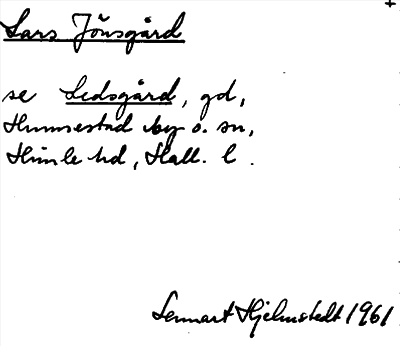 Lars Jönsgård
se Ledsgård, gd,
Hunnestad by o. sn,
Himle hd, Hall. l.
Lennart Hjelmstedt 1961